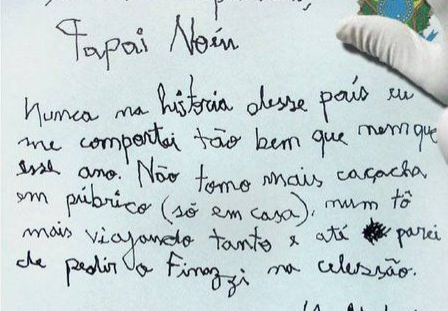 Papai Noéu
Nunca na história desse país eu
me comportei tão bem que nem que
esse ano. Não tomo mais caçacha
em púbrico (só em casa), num tô
mais viajando tanto e até parei
de pedir o Finazzi na celessão.